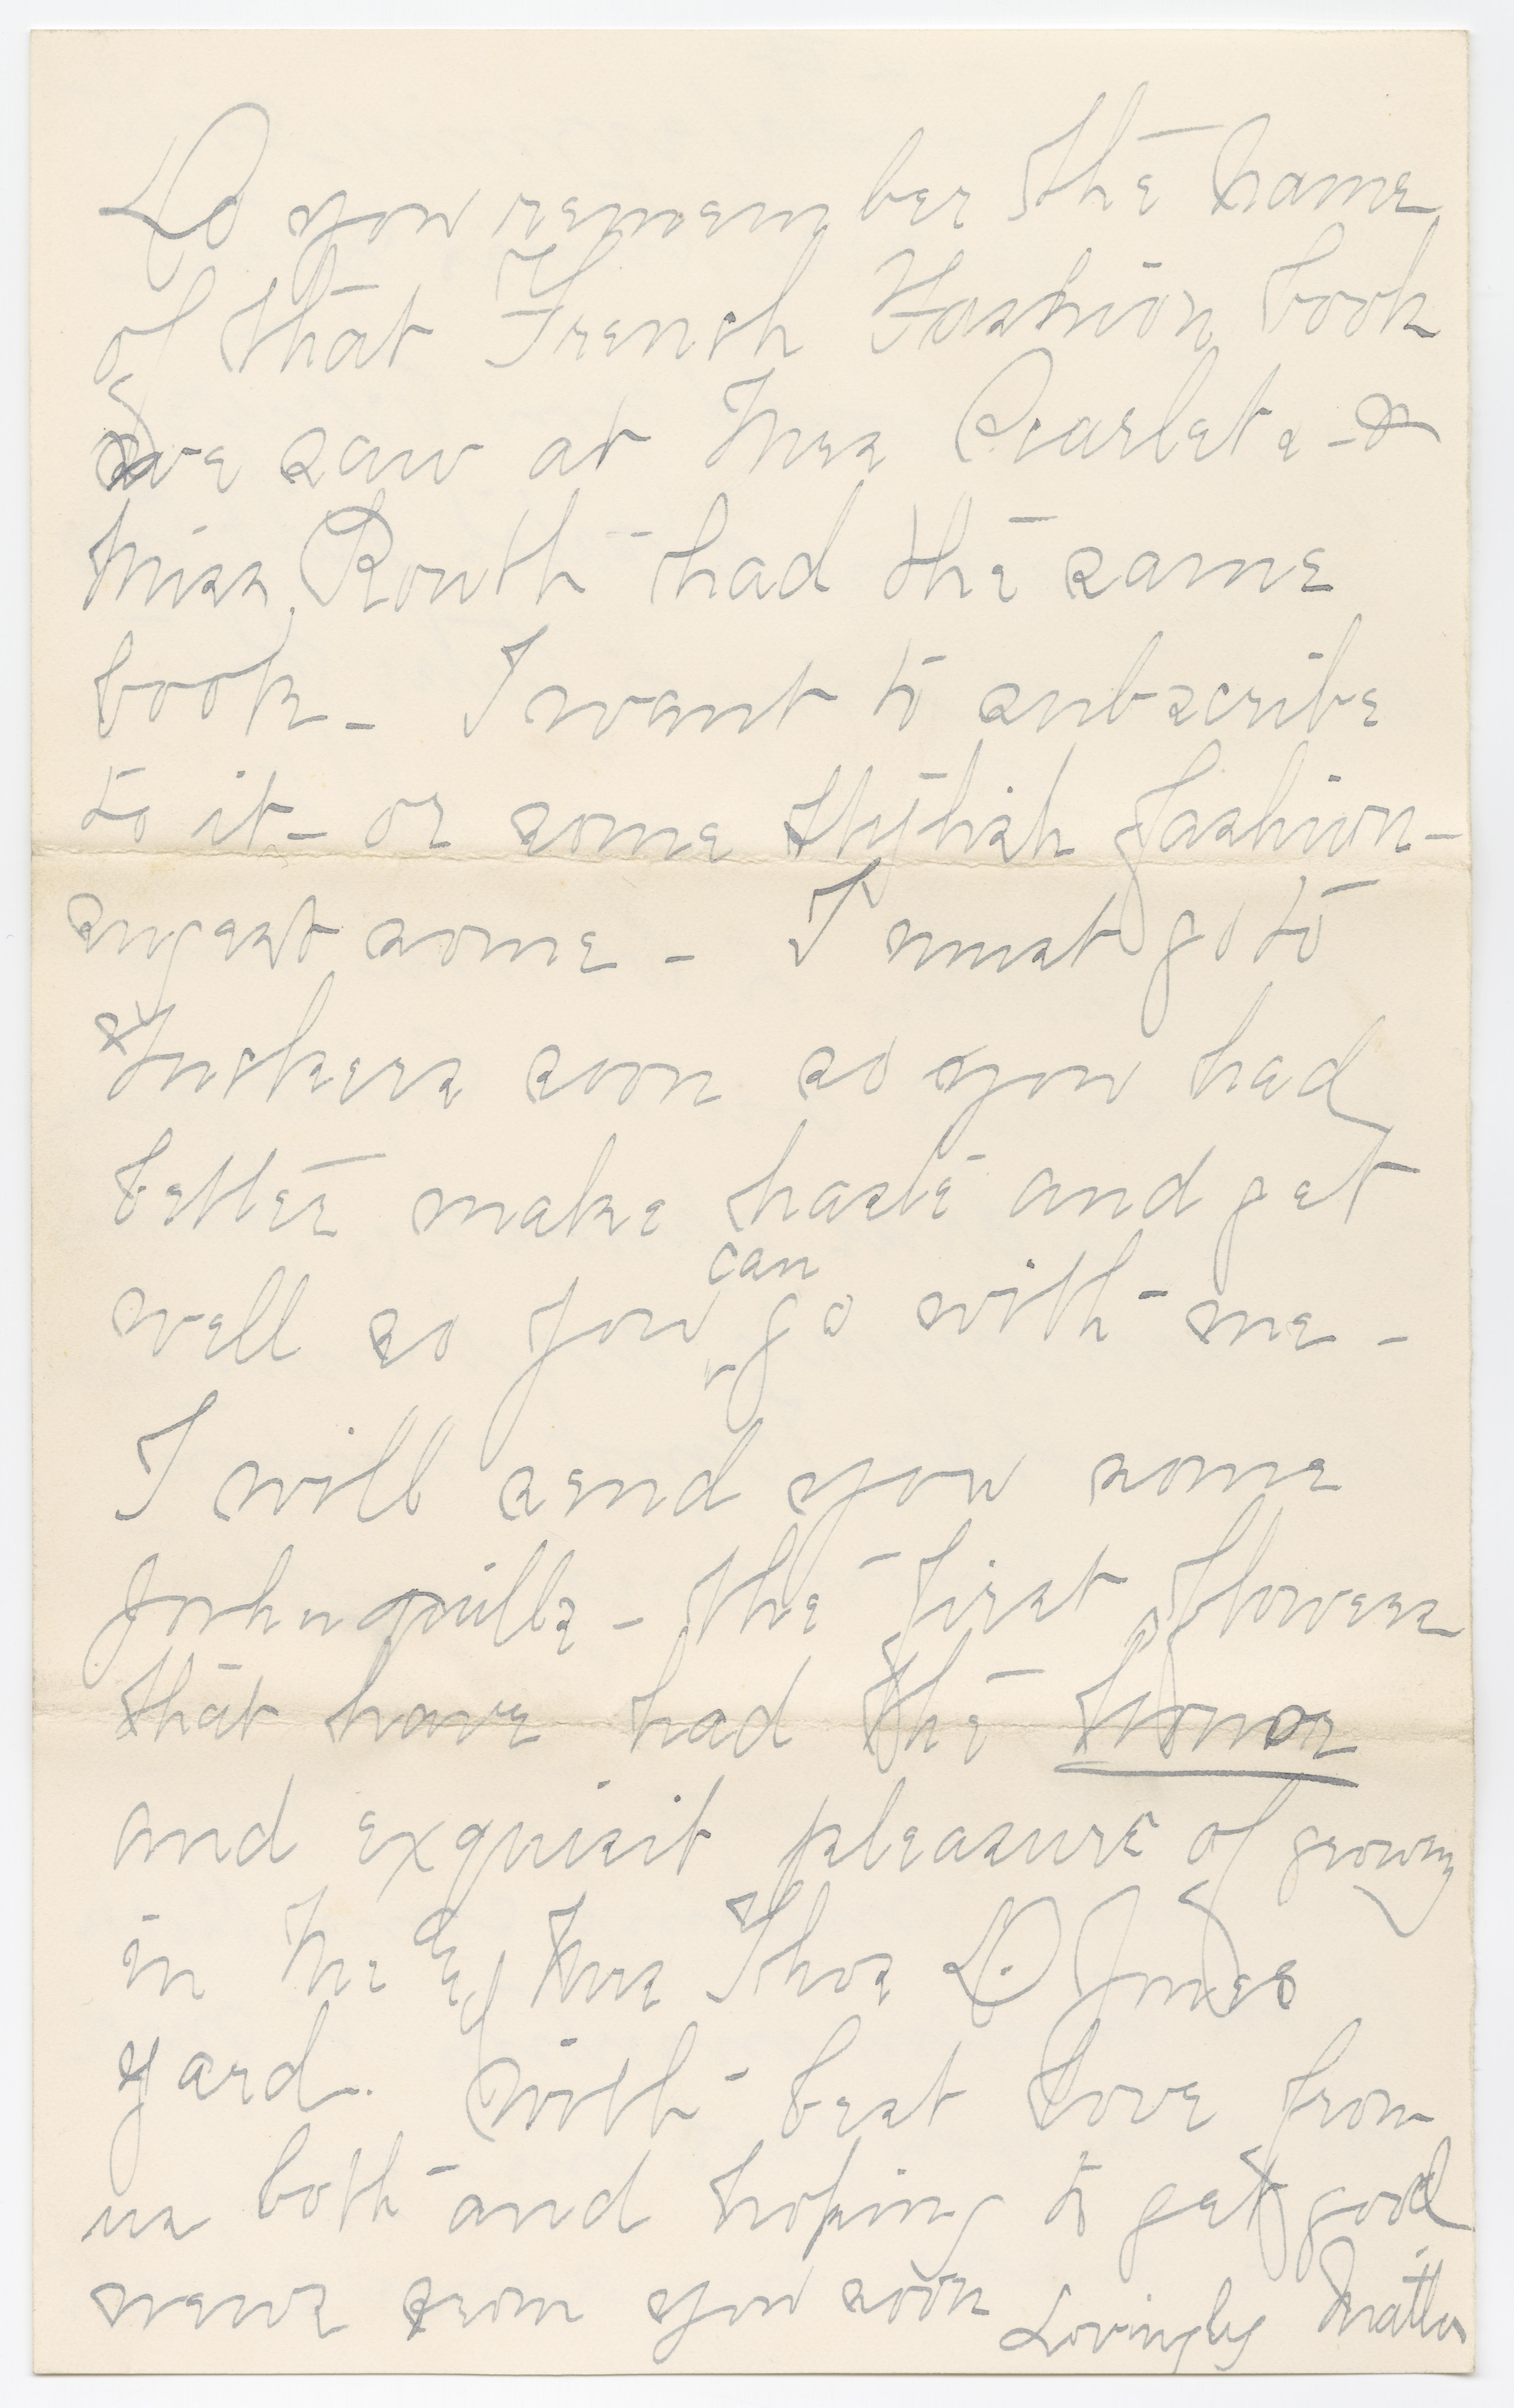 Do you remember the name
of that French Fashion book
we saw at Mrs Scarlets - &
Miss Routh had the same
book - I want to subscribe
to it - or some stylish fashion -
sugest some - I must go to
Tuckers soon so you had
better make haste and get
well so you can go with me -
I will send you some
Johnquills - the first flowers
that have had the honor
and exquisit pleasure of growing
in Mr & Mrs Thos D. Jones
yard. With best love from
us both and hoping to get good
news from you soon Lovingly